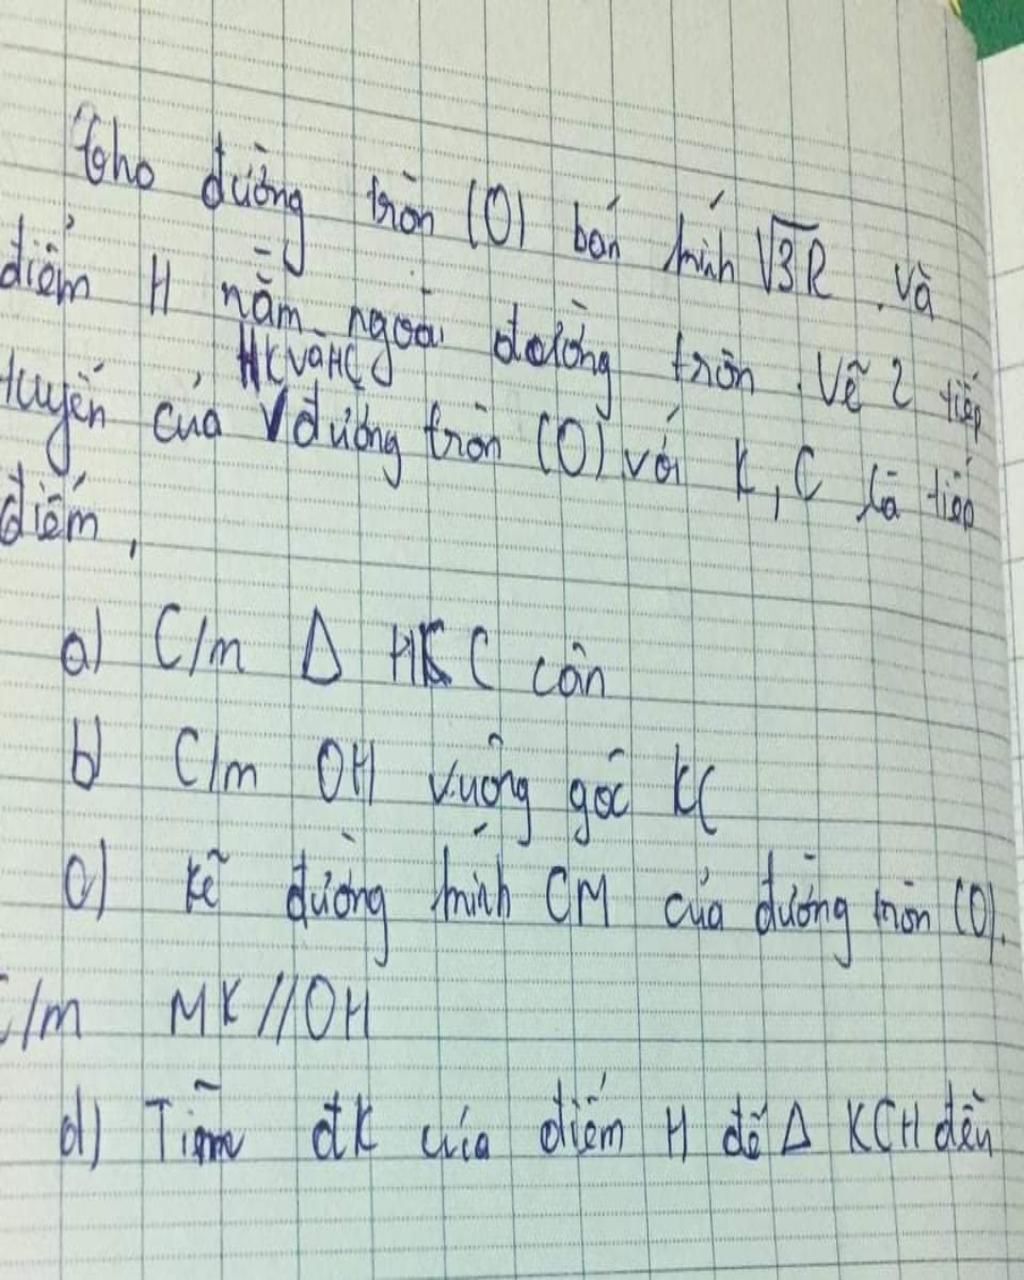 Cho đường tròn (O) bán kính √3R và
điểm H nằm ngoài đường tròn. Vẽ 2 tiếp
tuyến HK và HC của đường tròn (O) với K, C là tiếp
điểm,
a) C/m Δ HKC cân
b) C/m OH vuông góc KC
c) Kẽ đường kính CM của đường tròn (O).
C/m MK // OH
d) Tìm đk của điểm H để Δ KCH đều